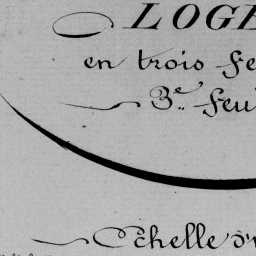 LOGE
en trois fe
3.e feu
Echelle d'u